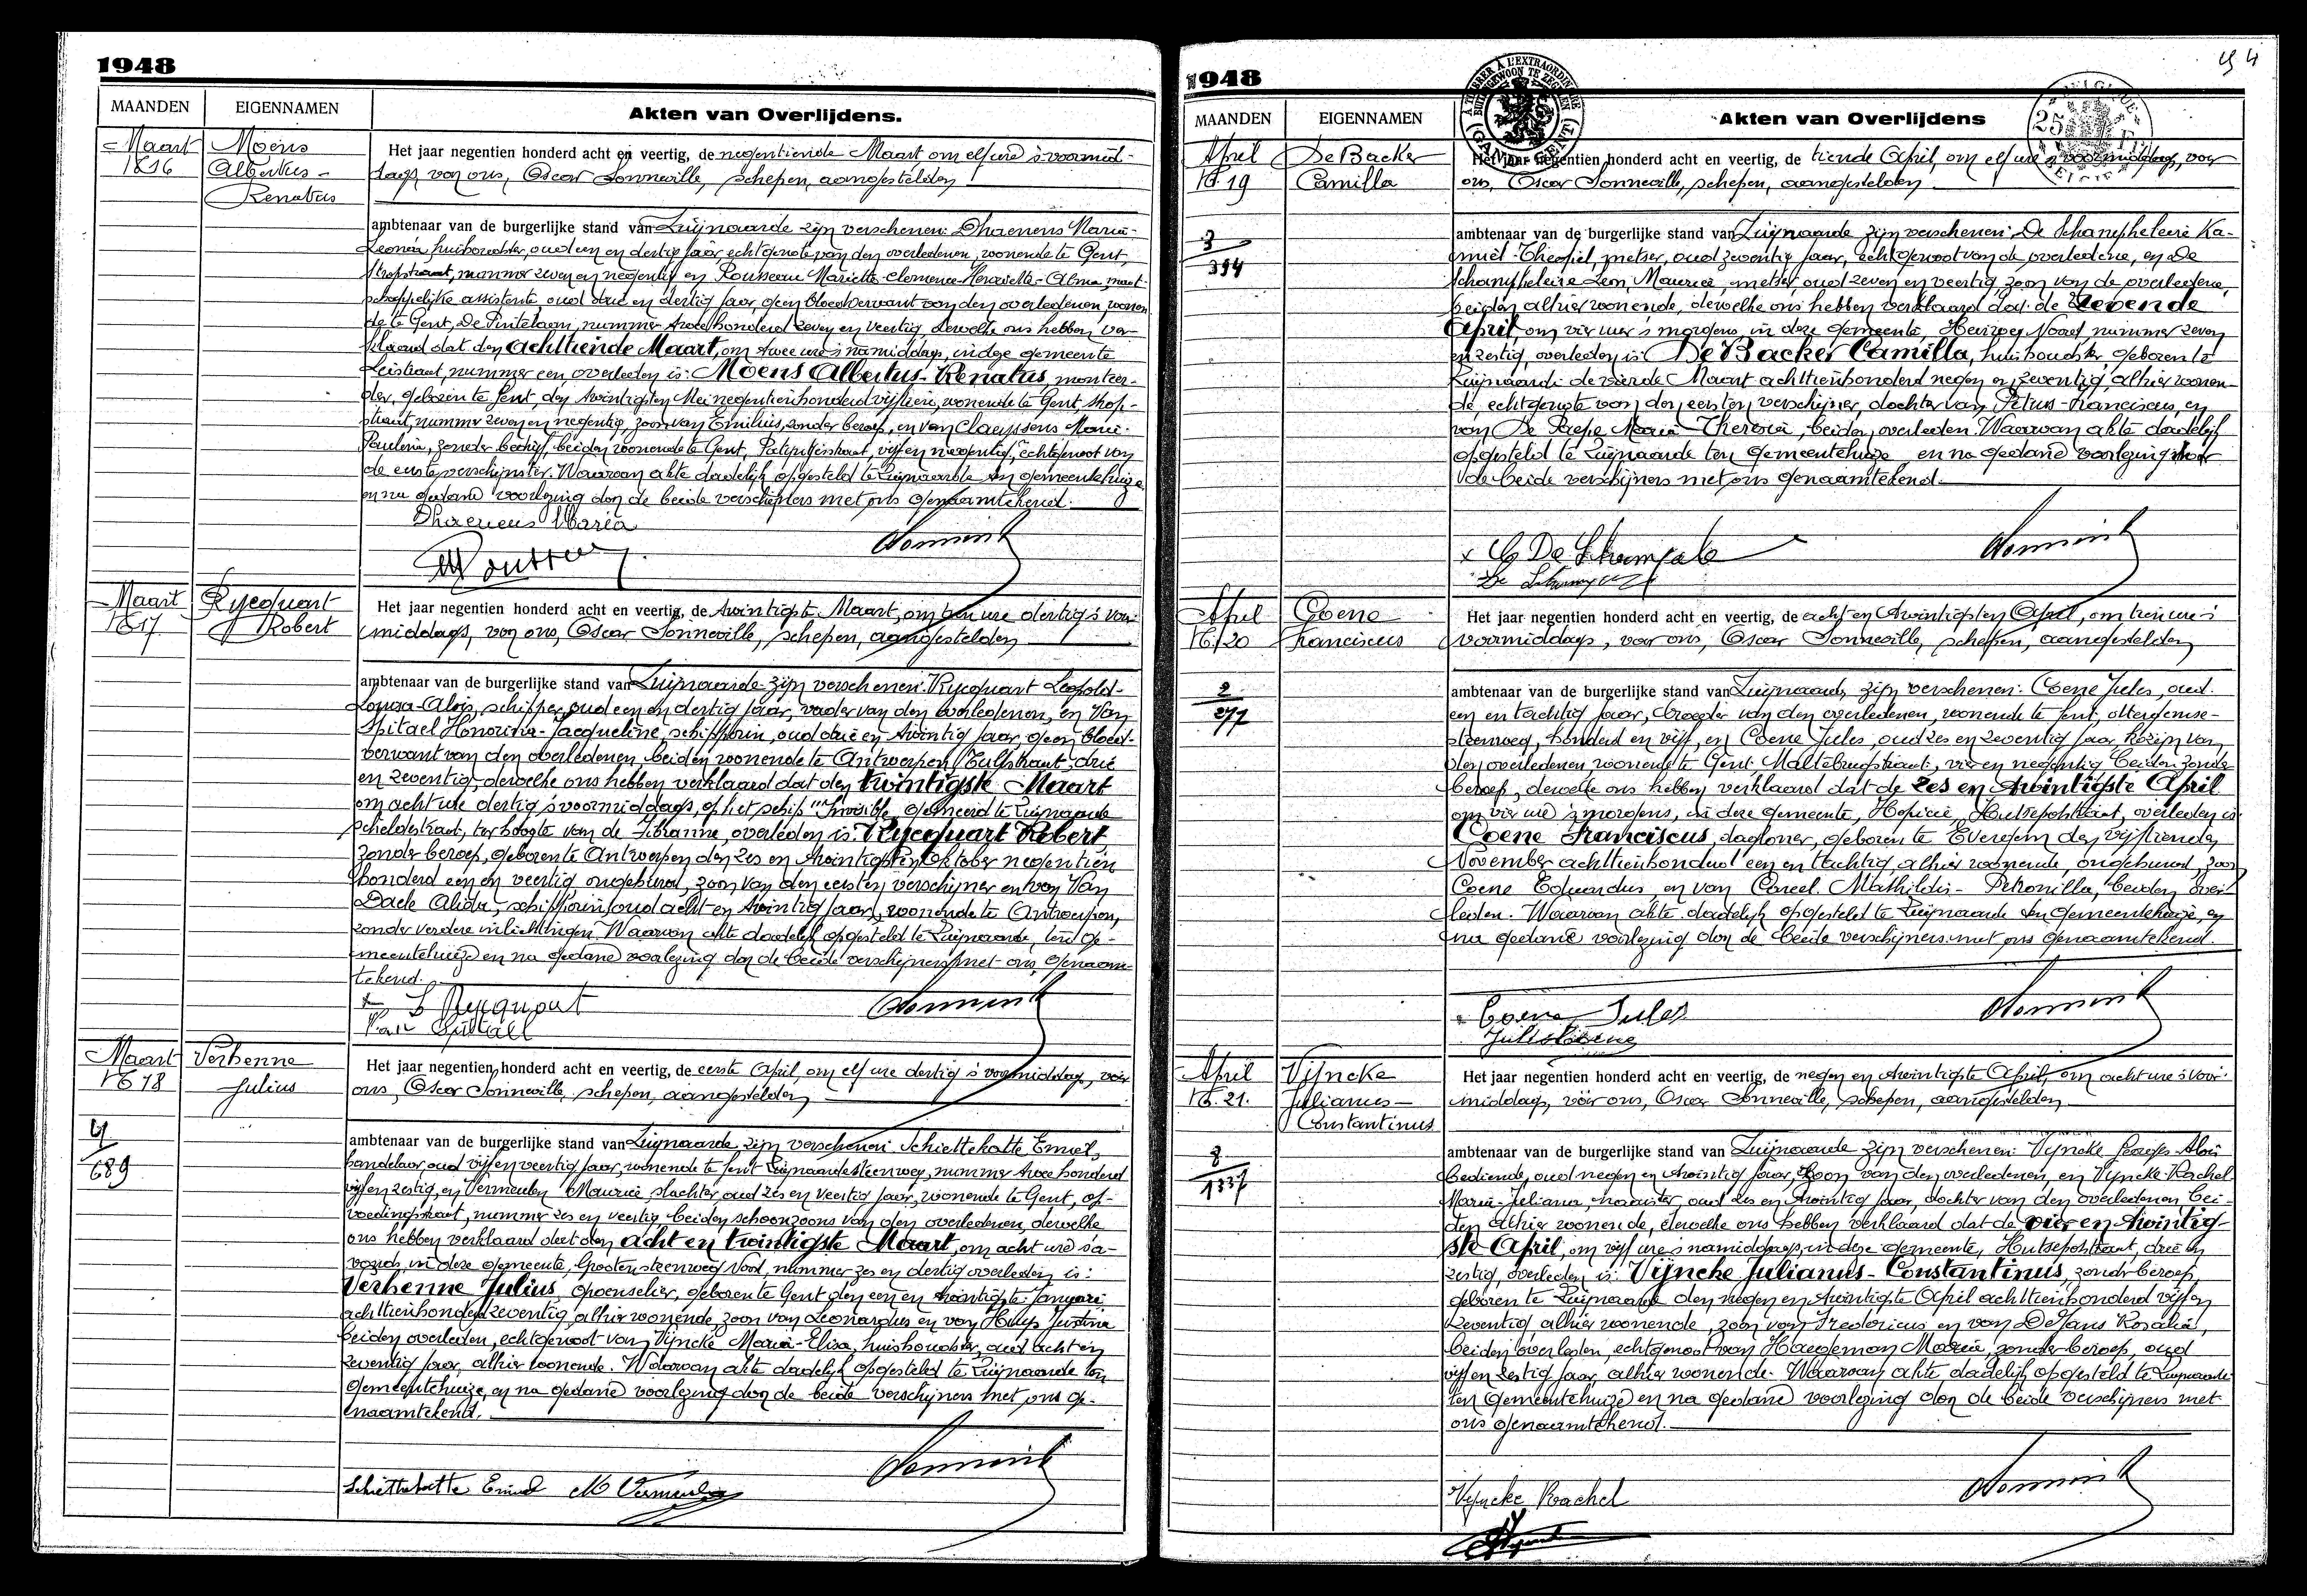 1948
MAANDEN
EIGENNAMEN
Akten van Overlijdens.
Maart
N° 16
Moens
Albertus-
Renatus
Het jaar negentien honderd acht en veertig, de negentiende Maart om elf ure 's voormid-
dags, voor ons, Oscar Sonneville, schepen, aangestelden
ambtenaar van de burgerlijke stand van Zwijnaarde zijn verschenen: Dhaenens Maria-
Leonia, huishoudster, oud een en dertig jaar, echtgenote van den overledenen, wonende te Gent,
Stropstraat, nummer zeven en negentig en Rousseau Mariette-Clemence-Henriette-Alma, maat-
schappelijke assistente oud drie en dertig jaar, geen bloedverwant van den overledenen, wonen-
de te Gent, De Pintelaan, nummer twee honderd zeven en veertig, dewelke ons hebben ver-
klaard dat den achttiende Maart, om twee ure 's namiddags, in deze gemeente
Leistraat, nummer een, overleden is: Moens Albertus-Renatus, monteer-
der, geboren te Gent, den twintigsten Mei negentienhonderd vijftien, wonende te Gent, Strop-
straat, nummer zeven en negentig, zoon van Emilius, zonder beroep, en van Claeyssens Maria-
Paulina, zonder bedrijf, beiden wonende te Gent, Patijntjestraat, vijf en negentig, echtgenoot van
de eerste verschijnster. Waarvan akte dadelijk opgesteld te Zwijnaarde ten gemeentehuize
en na gedane voorlezing door de beide verschijners met ons genaamtekend.
Dhaenens Maria
Maart
N° 17
Rycquart
Robert
Het jaar negentien honderd acht en veertig, de twintigste Maart, om tien ure dertig 's voor-
middags, voor ons, Oscar Sonneville, schepen, aangestelden
ambtenaar van de burgerlijke stand van Zwijnaarde zijn verschenen: Rycquart Leopold-
Louisa-Alois, schipper, oud een en dertig jaar, vader van den overledenen, en Van
Spitael Honorina-Jacqueline, schipperin, oud drie en twintig jaar, geen bloed-
verwant van den overledenen, beiden wonende te Antwerpen, Tulpstraat, drie
en zeventig, dewelke ons hebben verklaard dat den twintigste Maart
om acht ure dertig 's voormiddags, op het schip "Invisible" gemeerd te Zwijnaarde
Scheldestraat, ter hoogte van de Fibranne, overleden is: Rycquart Robert
zonder beroep, geboren te Antwerpen den zes en twintigsten Oktober negentien
honderd een en veertig, ongehuwd, zoon van den eersten verschijner en van Van
Daele Alida, schipperin, oud acht en twintig jaar, wonende te Antwerpen,
zonder verdere inlichtingen. Waarvan akte dadelijk opgesteld te Zwijnaarde, ten ge-
meentehuize en na gedane voorlezing door de beide verschijners met ons, genaam-
tekend.
L Rycquart
Van Spitael
Maart
N° 18
Verhenne
Julius
4
689
Het jaar negentien honderd acht en veertig, de eerste April, om elf ure dertig 's voormiddag, voor
ons, Oscar Sonneville, schepen, aangestelden
ambtenaar van de burgerlijke stand van Zwijnaarde zijn verschenen: Schiettekatte Emiel,
handelaar, oud vijf en veertig jaar, wonende te Gent Zwijnaardesteenweg, nummer twee honderd
vijf en zestig, en Vermeulen Maurice, slachter, oud zes en veertig jaar, wonende te Gent, op-
voedingstraat, nummer zes en veertig, beiden schoonzoons van den overledenen, dewelke
ons hebben verklaard dat den acht en twintigste Maart, om acht ure 's a-
vonds, in deze gemeente, Grootensteenweg Noord, nummer zes en dertig overleden is:
Verhenne Julius, gepensioeneerde, geboren te Gent den een en twintigste Januari
achttienhonderd zeventig, alhier wonende, zoon van Leonardus en van Huys Justina
beiden overleden, echtgenoot van Vyncke Maria-Elisa, huishoudster, oud acht en
zeventig jaar, alhier wonende. Waarvan akte dadelijk opgesteld te Zwijnaarde ten
gemeentehuize, en na gedane voorlezing door de beide verschijners met ons ge-
naamtekend.
Schiettekatte Emiel M Vermeulen
1948
MAANDEN
EIGENNAMEN
Akten van Overlijdens
April
N° 19
De Backer
Camilla
3
394
Het jaar negentien honderd acht en veertig, de tiende April, om elf ure 's voormiddags, voor
ons, Oscar Sonneville, schepen, aangestelden
ambtenaar van de burgerlijke stand van Zwijnaarde zijn verschenen: De Schampheleire Ka-
miel-Theofiel, metser, oud zeventig jaar, echtgenoot van de overledene, en De
Schampheleire Leon, Maurice, metser oud zeven en veertig zoon van de overledene,
beiden alhier wonende, dewelke ons hebben verklaard dat de zevende
April, om vier uur 's morgens, in deze gemeente, Heirweg Noord, nummer zeven
en zestig, overleden is: De Backer Camilla, huishoudster, geboren te
Zwijnaarde de vierde Maart achttienhonderd negen en zeventig, alhier wonen-
de, echtgenote van den eersten verschijner, dochter van Petrus-Franciscus, en
van De Paepe Maria Theresia, beiden overleden. Waarvan akte dadelijk
opgesteld te Zwijnaarde ten gemeentehuize, en na gedane voorlezing door
de beide verschijners met ons genaamtekend.
April
N° 20
Coene
Franciscus
2
277
Het jaar negentien honderd acht en veertig, de acht en twintigsten April, om tien ure 's
voormiddags, voor ons, Oscar Sonneville, schepen, aangestelden
ambtenaar van de burgerlijke stand van Zwijnaarde, zijn verschenen: Coene Jules, oud
een en tachtig jaar, broeder van den overledenen, wonende te Gent, Ottergemse-
steenweg, honderd en vijf, en Coene Jules, oud zes en zeventig jaar kozijn van
den overledenen wonende te Gent Maltebrugstraat, vier en negentig beiden zonder
beroep, dewelke ons hebben verklaard dat de zes en twintigste April
om vier ure 's morgens, in deze gemeente, Hospicie, Hutsepotstraat, overleden is:
Coene Franciscus, dagloner, geboren te Evergem den vijftienden
November achttienhonderd een en tachtig, alhier wonende, ongehuwd, zoon
Coene Eduardus, en van Careel Mathildis-Petronilla, beiden over-
leden. Waarvan akte dadelijk opgesteld te Zwijnaarde ten gemeentehuize, en
na gedane voorlezing door de beide verschijners met ons genaamtekend.
Coene Jules
Jules Coene
April
N° 21.
Vyncke
Julianus-
Constantinus
8
1337
Het jaar negentien honderd acht en veertig, de negen en twintigste April, om acht ure 's voor-
middags, voor ons, Oscar Sonneville, schepen, aangestelden
ambtenaar van de burgerlijke stand van Zwijnaarde zijn verschenen: Vyncke Georges-Aloïs
bediende, oud negen en twintig jaar, zoon van den overledenen, en Vyncke Rachel
Maria-Juliana, naaister, oud zes en twintig jaar, dochter van den overledenen, bei-
den alhier wonende, dewelke ons hebben verklaard dat de vier en twintig-
ste April, om vijf ure 's namiddags, in deze gemeente, Hutsepotstraat, drie en
zestig, overleden is: Vyncke Julianus-Constantinus, zonder beroep,
geboren te Zwijnaarde den negen en twintigste April achttienhonderd vijf en
zeventig, alhier wonende, zoon van Fredericus en van De Jans Rosalia,
beiden overleden, echtgenoot van Haegeman Maria, zonder beroep, oud
vijf en zestig jaar, alhier wonende. Waarvan akte dadelijk opgesteld te Zwijnaarde
ten gemeentehuize en na gedane voorlezing door de beide verschijners met
ons genaamtekend.
Vyncke Rachel